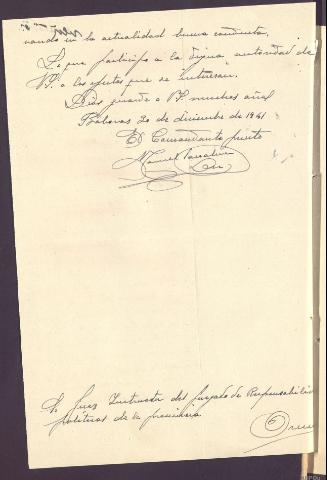 vando en la actualidad buena conducta.
Lo que participo a la digna autoridad de
VS. a los efectos que se interesan.
Dios guarde a VS. muchos años
20 de diciembre de 1941
El Comandante puesto
Manuel
Sr. Juez Instructor del Juzgado de Responsabilid
políticas de la provincia